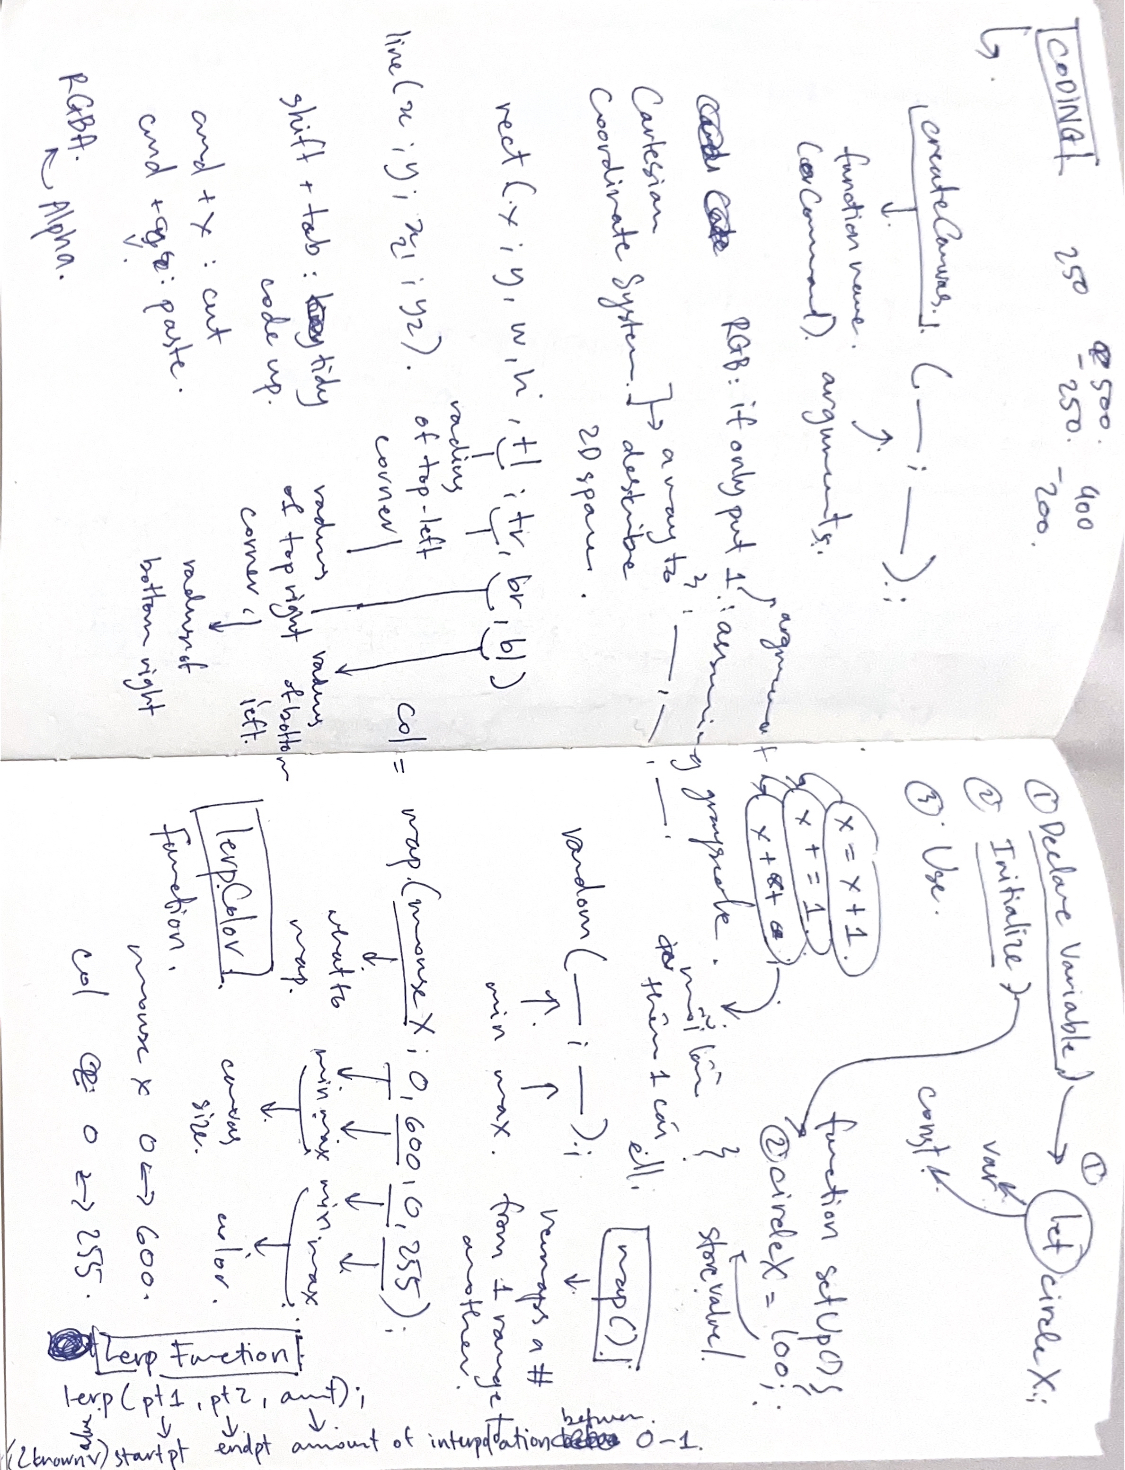 CODING
250
500.
- 250.
400
- 200.
createCanvas. ( __ ; __ );
function name.
(or Command).
arguments.
RGB: if only put 1 : assuming grayscale.
argument
Cartesian
Coordinate System.
a way to
describe
2D space.
rect (x ; y, w, h, tl ; tr, br, bl)
radius
of top-left
corner
radius
of top right
corner
radius of
bottom right
radius
of bottom
left.
line(x ; y ; x2 ; y2).
shift + tab : tidy
code up.
cmd + x : cut
cmd + v : paste.
RGBA.
Alpha.
① Declare Variable
② Initialize
③. Use.
① let circleX ;
var
const
function setUp() {
② circleX = 100;
}
store value.
x = x + 1.
x + = 1.
x + +
mỗi lần
thêm 1 cái
ell.
random ( __ ; __ );
min max.
map().
remaps a #
from 1 range to
another.
col = map.(mouseX ; 0, 600, 0, 255);
what to
map.
min max min. max
canvas
size.
color.
lerpColor.
function.
mouse x 0 <-> 600.
col 0 <-> 255.
Lerp Function
lerp( pt1 , pt2 , amt);
startpt endpt amount of interpolation between 0-1.